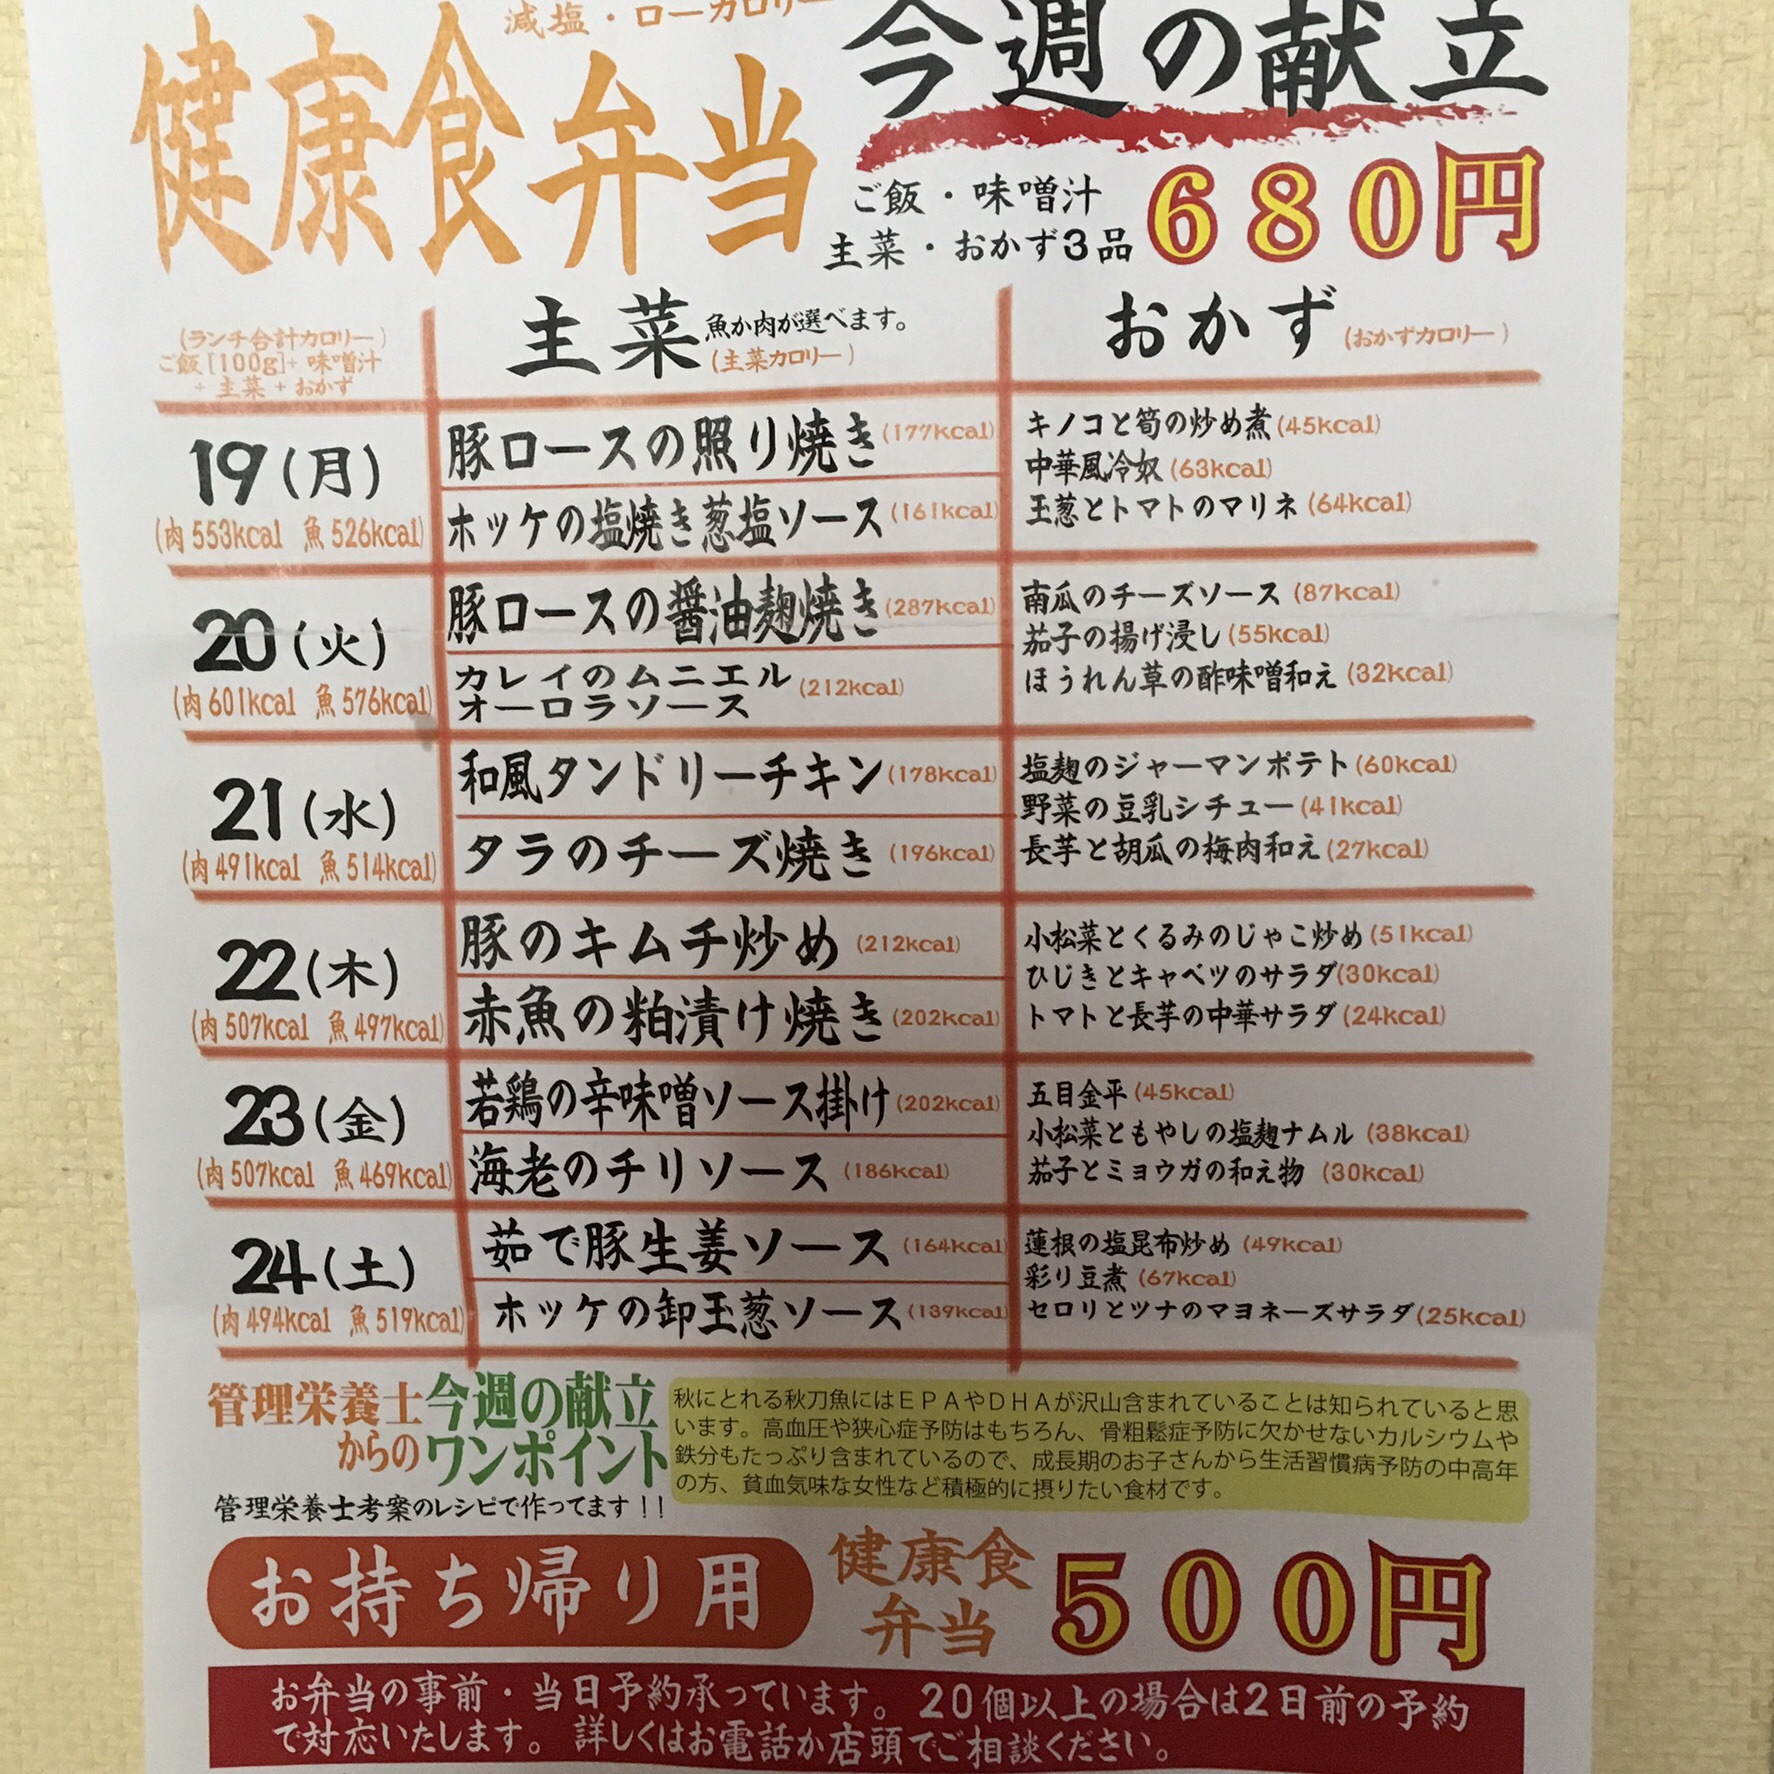 減塩・ローカロリー
健康食弁当
今週の献立
ご飯・味噌汁
主菜・おかず3品
680円
(ランチ合計カロリー)
ご飯[100g]+味噌汁
+主菜+おかず
主菜 魚か肉が選べます。
(主菜カロリー)
おかず(おかずカロリー)
19(月)
(肉553kcal 魚526kcal)
豚ロースの照り焼き(177kcal)
ホッケの塩焼き葱塩ソース(161kcal)
キノコと筍の炒め煮(45kcal)
中華風冷奴(63kcal)
玉葱とトマトのマリネ(64kcal)
20(火)
(肉601kcal 魚576kcal)
豚ロースの醤油麹焼き(287kcal)
カレイのムニエル
オーロラソース
(212kcal)
南瓜のチーズソース(87kcal)
茄子の揚げ浸し(55kcal)
ほうれん草の酢味噌和え(32kcal)
21(水)
(肉491kcal 魚514kcal)
和風タンドリーチキン(178kcal)
タラのチーズ焼き(196kcal)
塩麹のジャーマンポテト(60kcal)
野菜の豆乳シチュー(41kcal)
長芋と胡瓜の梅肉和え(27kcal)
22(木)
(肉507kcal 魚497kcal)
豚のキムチ炒め(212kcal)
赤魚の粕漬け焼き(202kcal)
小松菜とくるみのじゃこ炒め(51kcal)
ひじきとキャベツのサラダ(30kcal)
トマトと長芋の中華サラダ(24kcal)
23(金)
(肉507kcal 魚469kcal)
若鶏の辛味噌ソース掛け(202kcal)
海老のチリソース(186kcal)
五目金平(45kcal)
小松菜ともやしの塩麹ナムル(38kcal)
茄子とミョウガの和え物(30kcal)
24(土)
(肉494kcal 魚519kcal)
茹で豚生姜ソース(164kcal)
ホッケの卸玉葱ソース(139kcal)
蓮根の塩昆布炒め(49kcal)
彩り豆煮(67kcal)
セロリとツナのマヨネーズサラダ(25kcal)
管理栄養士今週の献立
からのワンポイント
管理栄養士考案のレシピで作ってます!!
秋にとれる秋刀魚にはEPAやDHAが沢山含まれていることは知られていると思
います。高血圧や狭心症予防はもちろん、骨粗鬆症予防に欠かせないカルシウムや
鉄分もたっぷり含まれているので、成長期のお子さんから生活習慣病予防の中高年
の方、貧血気味な女性など積極的に摂りたい食材です。
お持ち帰り用
健康食
弁当
500円
お弁当の事前・当日予約承っています。20個以上の場合は2日前の予約
で対応いたします。詳しくはお電話か店頭でご相談ください。